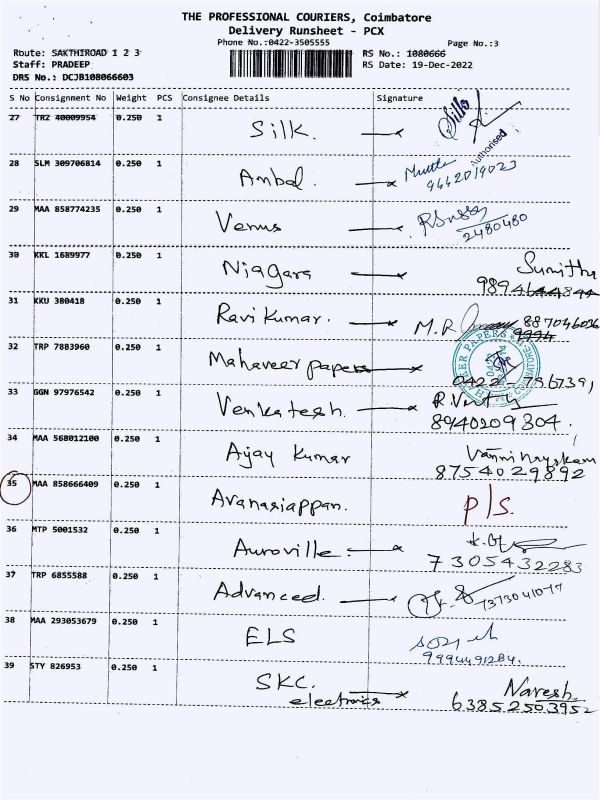 THE PROFESSIONAL COURIERS, Coimbatore
Delivery Runsheet - PCX
Phone No.:0422-3505555
Page No.:3
Route: SAKTHIROAD 1 2 3
RS No.: 1080666
Staff: PRADEEP
RS Date: 19-Dec-2022
DRS No.: DCJB108066603
S No Consignment No Weight PCS Consignee Details Signature
27 TRZ 40009954 0.250 1 Silk. Silks
Authorised
28 SLM 309706814 0.250 1 Ambal. Muthu
9442019023
29 MAA 858774235 0.250 1 Venus
2480480
30 KKL 1689977 0.250 1 Niagara Sunitha
31 KKU 380418 0.250 1 Ravi Kumar. M.R
32 TRP 7883960 0.250 1 Mahaveer papers
33 GGN 97976542 0.250 1 Venkatesh.
8940209304.
34 MAA 568012100 0.250 1 Ajay Kumar
8754029892
35 MAA 858666409 0.250 1 Avanasiappan. P/S.
36 MTP 5001532 0.250 1 Auroville.
7305432283
37 TRP 6855588 0.250 1 Advanced.
38 MAA 293053679 0.250 1 ELS
9994491284.
39 STY 826953 0.250 1 SKC. Naresh.
electronics 63852503952